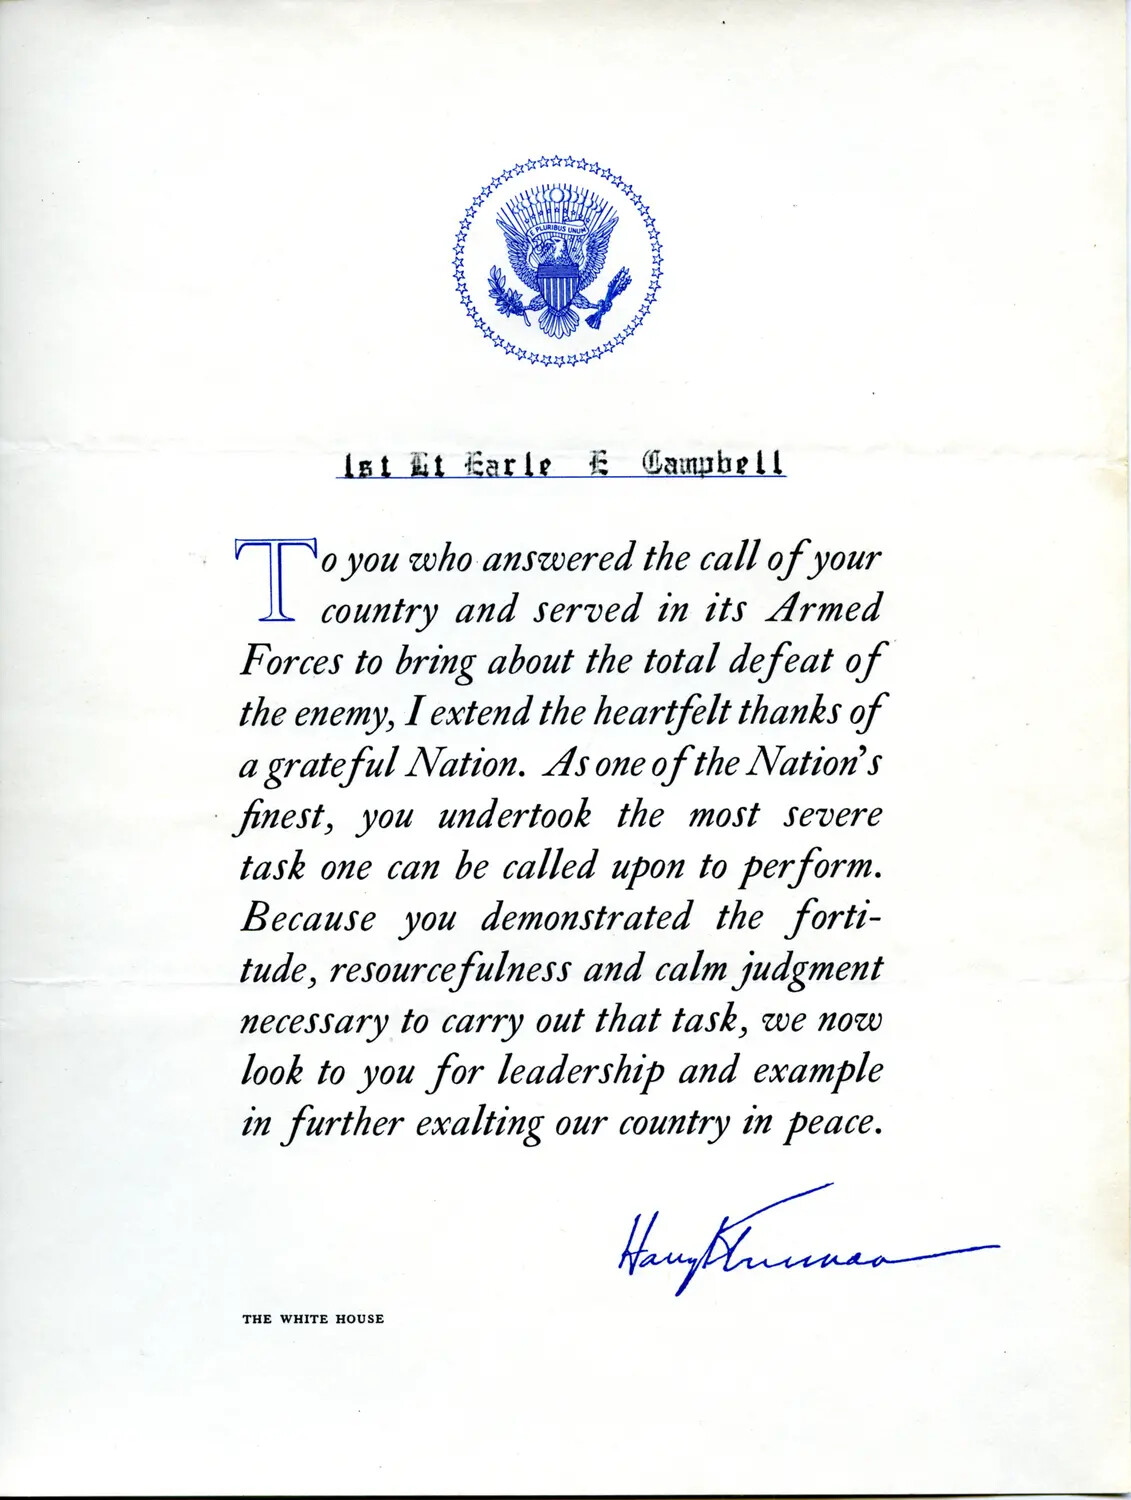 E PLURIBUS UNUM
1st Lt Earle E Campbell
To you who answered the call of your
country and served in its Armed
Forces to bring about the total defeat of
the enemy, I extend the heartfelt thanks of
a grateful Nation. As one of the Nation's
finest, you undertook the most severe
task one can be called upon to perform.
Because you demonstrated the forti-
tude, resourcefulness and calm judgment
necessary to carry out that task, we now
look to you for leadership and example
in further exalting our country in peace.
Harry S Truman
THE WHITE HOUSE